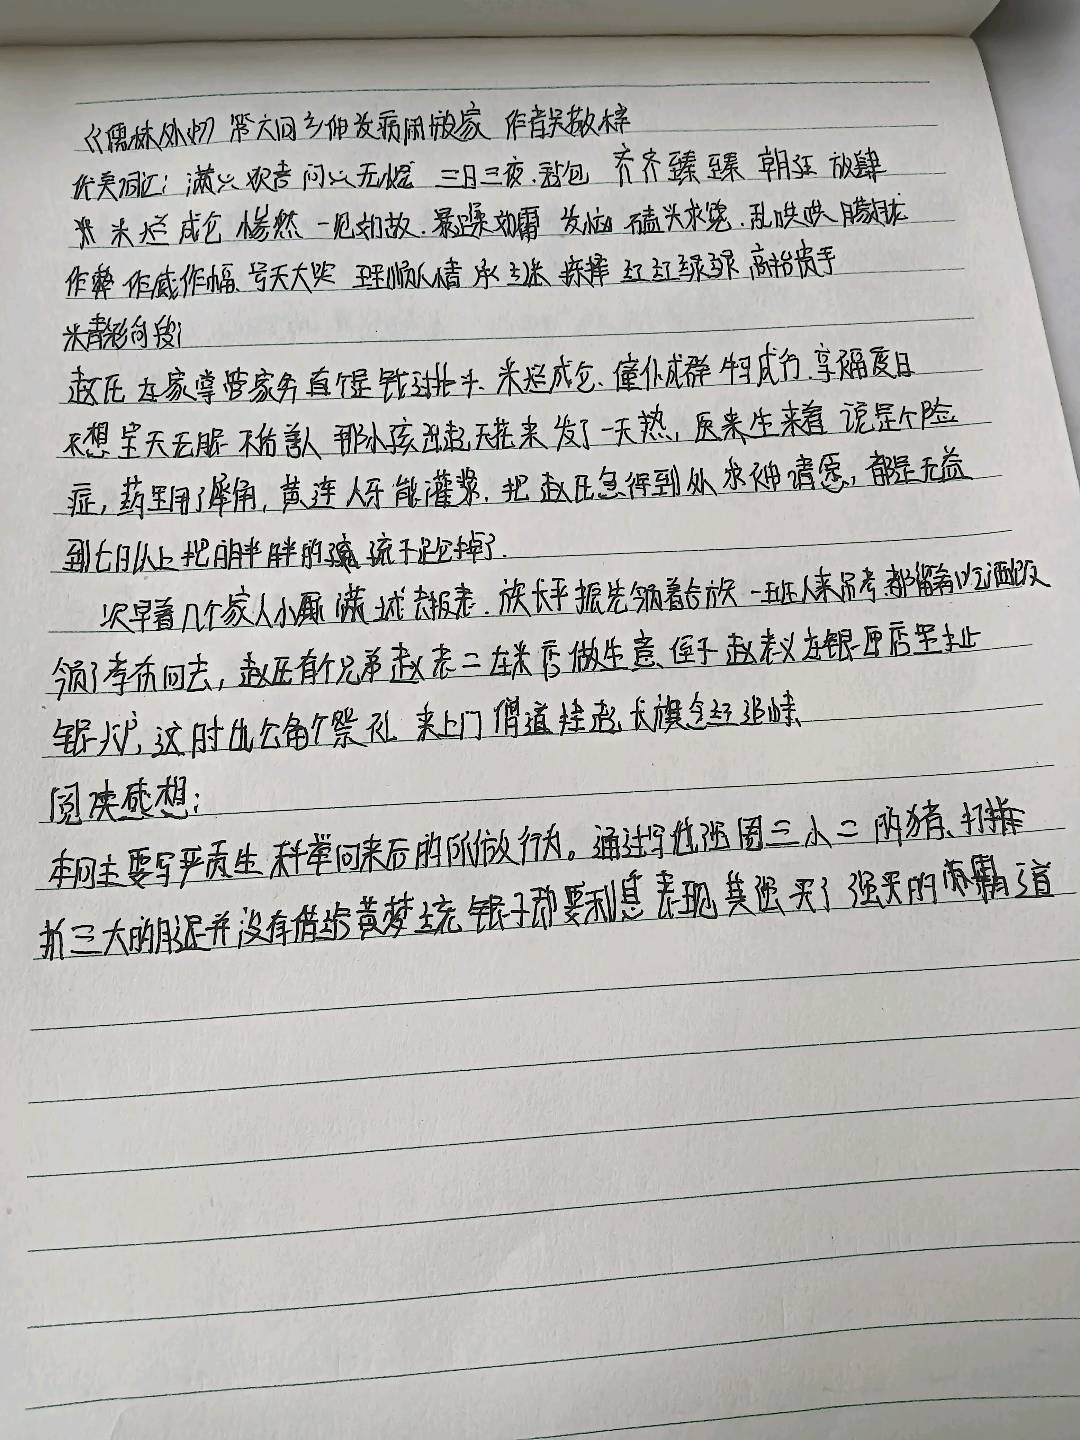 《儒林外史》第六回 乡绅发病闹船家 作者吴敬梓
优美词汇：满心欢喜 问心无愧 三日三夜、 齐齐臻臻 朝廷 放肆
米烂成仓 惨然 一见如故、暴躁如雷 发恼 磕头求饶、乱哄哄 朦胧
作弊 作威作福、号天大哭 顺人情 承 选择 红红绿绿 高抬贵手
精彩句段：
赵氏在家掌管家务真个是钱过北斗、米烂成仓、僮仆成群 牛马成行、享福度日
不想皇天无眼 不佑善人 那小孩出起天花来 发了一天热，医来生来看 说是个险
症，药里用了犀角，黄连 人牙 能灌浆，把赵氏急得到处求神请愿，都是无益
到七日以上把白胖胖的孩 流子跑掉了。
次早着几个家人小厮满城去报丧、族长平振先领着合族一班人来吊孝 都留着吃酒饭
领了孝布回去，赵氏有个兄弟赵老二在米店做生意、侄子赵老义在银匠店里扯
银炉，这时也公角个祭礼 来上门 僧道挂起长旗念经追悼、
阅读感想：
本回主要写严贡生科举回来后的所做行为。通过写他强圈三小二的猪、打折
折三大的腿并没有借给黄梦统银子却要利息表现其强买了强买的